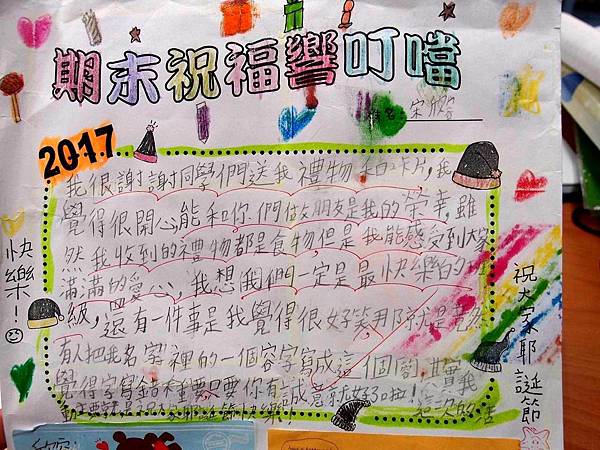 期末祝福響叮噹
姓名：宋欣容
2017
我很謝謝同學們送我禮物和卡片，我
覺得很開心，能和你們做朋友是我的榮幸，雖
然我收到的禮物都是食物，但是我能感受到大家
滿滿的愛心，我想我們一定是最快樂的班
級，還有一件事是我覺得很好笑，那就是竟然
有人把我名字裡的一個容字寫成這個
覺得字寫錯 只要你有誠意就好啦！
祝 耶誕節快樂！ 這次的活
快樂！
祝大家耶誕節